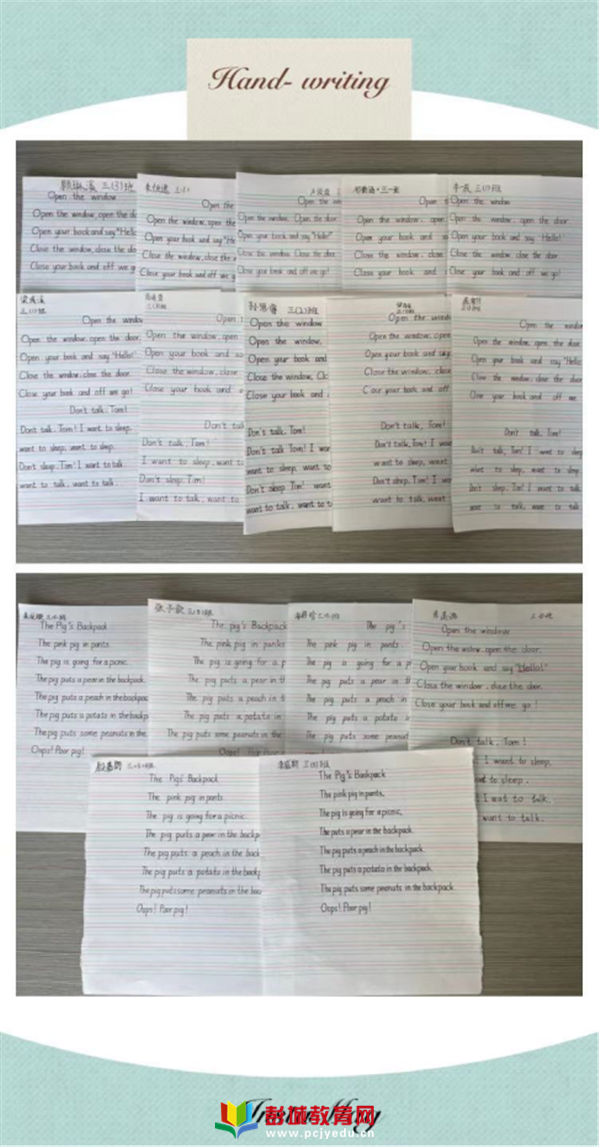 Hand- writing
三(3)班
Open the window
Open the window, open the do
Open your book and say "Hello
Close the window, close the do
Close your book and off we go!
Open the window
Open the window, open the
Open your book and say "He
Close the window, close the
Close your book and off we
Open the
Open the window. Open the door.
Open your book and say "Hello!"
Close the window. Close the door.
Close your book and off we go!
Open
Open the window, open
Open your book and
Close the window, close
Close your book and
三(1)班
Open the window
Open the window, open the door.
Open your book and say "Hello!"
Close the window, close the door.
Close your book and off we go!
三(1)班
Open the window
Open the window, open the door.
Open your book and say "Hello!"
Close the window, close the door.
Close your book and off we go!
Don't talk, Tom!
Don't talk, Tom! I want to sleep,
want to sleep, want to sleep.
Don't sleep, Tom! I want to talk,
want to talk, want to talk.
Open t
Open the window, open
Open your book and sa
Close the window, close
Close your book and
Don't talk
Don't talk, Tom!
I want to sleep, want to
Don't sleep, Tom!
I want to talk, want to
三(2)班
Open the window
Open the window,
Open your book and
Close the window, Clo
Close your book and
Don't talk, Tom!
Don't talk Tom! I war
want to sleep, want to
Don't sleep Tom! want
want to talk, want to t
Open the window
Open the window, open
Open your book and say
Close the window, close
Close your book and off
Don't talk, Tom!
Don't talk, Tom! I want
want to sleep, want to
Don't sleep, Tom! I want
want to talk, want
Open the window
Open the window, open the
Open your book and say "Hello
Close the window, close the door.
Close your book and off we
Don't talk, Tom!
Don't talk, Tom! I want to sleep
want to sleep, want to sleep
Don't sleep, Tom! I want to talk,
want to talk, want to talk
The Pig's Backpack
The pink pig in pants
The pig is going for a picnic.
The pig puts a pear in the backpack.
The pig puts a peach in the backpack
The pig puts a potato in the backp
The pig puts some peanuts in the b
Oops! Poor pig!
张子歆 三(3)班
The pig's Backpack
The pink pig in pants
The pig is going for a p
The pig puts a pear in th
The pig puts a peach in th
The pig puts a potato in
The pig puts some peanuts in the
Oops! Poor pig!
The pig's
The pink pig in pants.
The pig is going for a p
The pig puts a pear in th
The pig puts a peach in
The pig puts a potato i
The pig puts some peanut
Open the window
Open the window, open the door.
Open your book and say "Hello!"
Close the window, close the door.
Close your book and off we go!
Don't talk, Tom!
I want to sleep,
want to sleep.
I want to talk.
want to talk.
The Pig's Backpack
The pink pig in pants.
The pig is going for a picnic.
The pig puts a pear in the backp
The pig puts a peach in the back
The pig puts a potato in the backp
The pig puts some peanuts in the bac
Oops! Poor pig!
三(1)班
The Pig's Backpack
The pink pig in pants,
The pig is going for a picnic,
The puts a pear in the backpack
The pig puts a peach in the backpack.
The pig puts a potato in the backpack.
The pig puts some peanuts in the backpack.
Oops! Poor pig!
彭城教育网
www.pcjyedu.cn